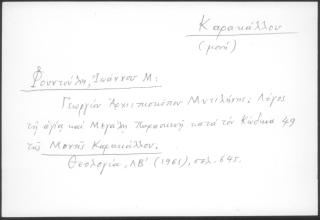 Καρακάλλου
(μονή)
Φουντούλη, Ἰωάννου Μ:
Γεωργίου Ἀρχιεπισκόπου Μυτιλήνης: Λόγος
τῇ ἁγίᾳ καὶ Μεγάλῃ Παρασκευῇ κατὰ τὸν Κώδικα 49
τῆς Μονῆς Καρακάλλου.
Θεολογία, ΛΒ' (1961), σελ. 645.